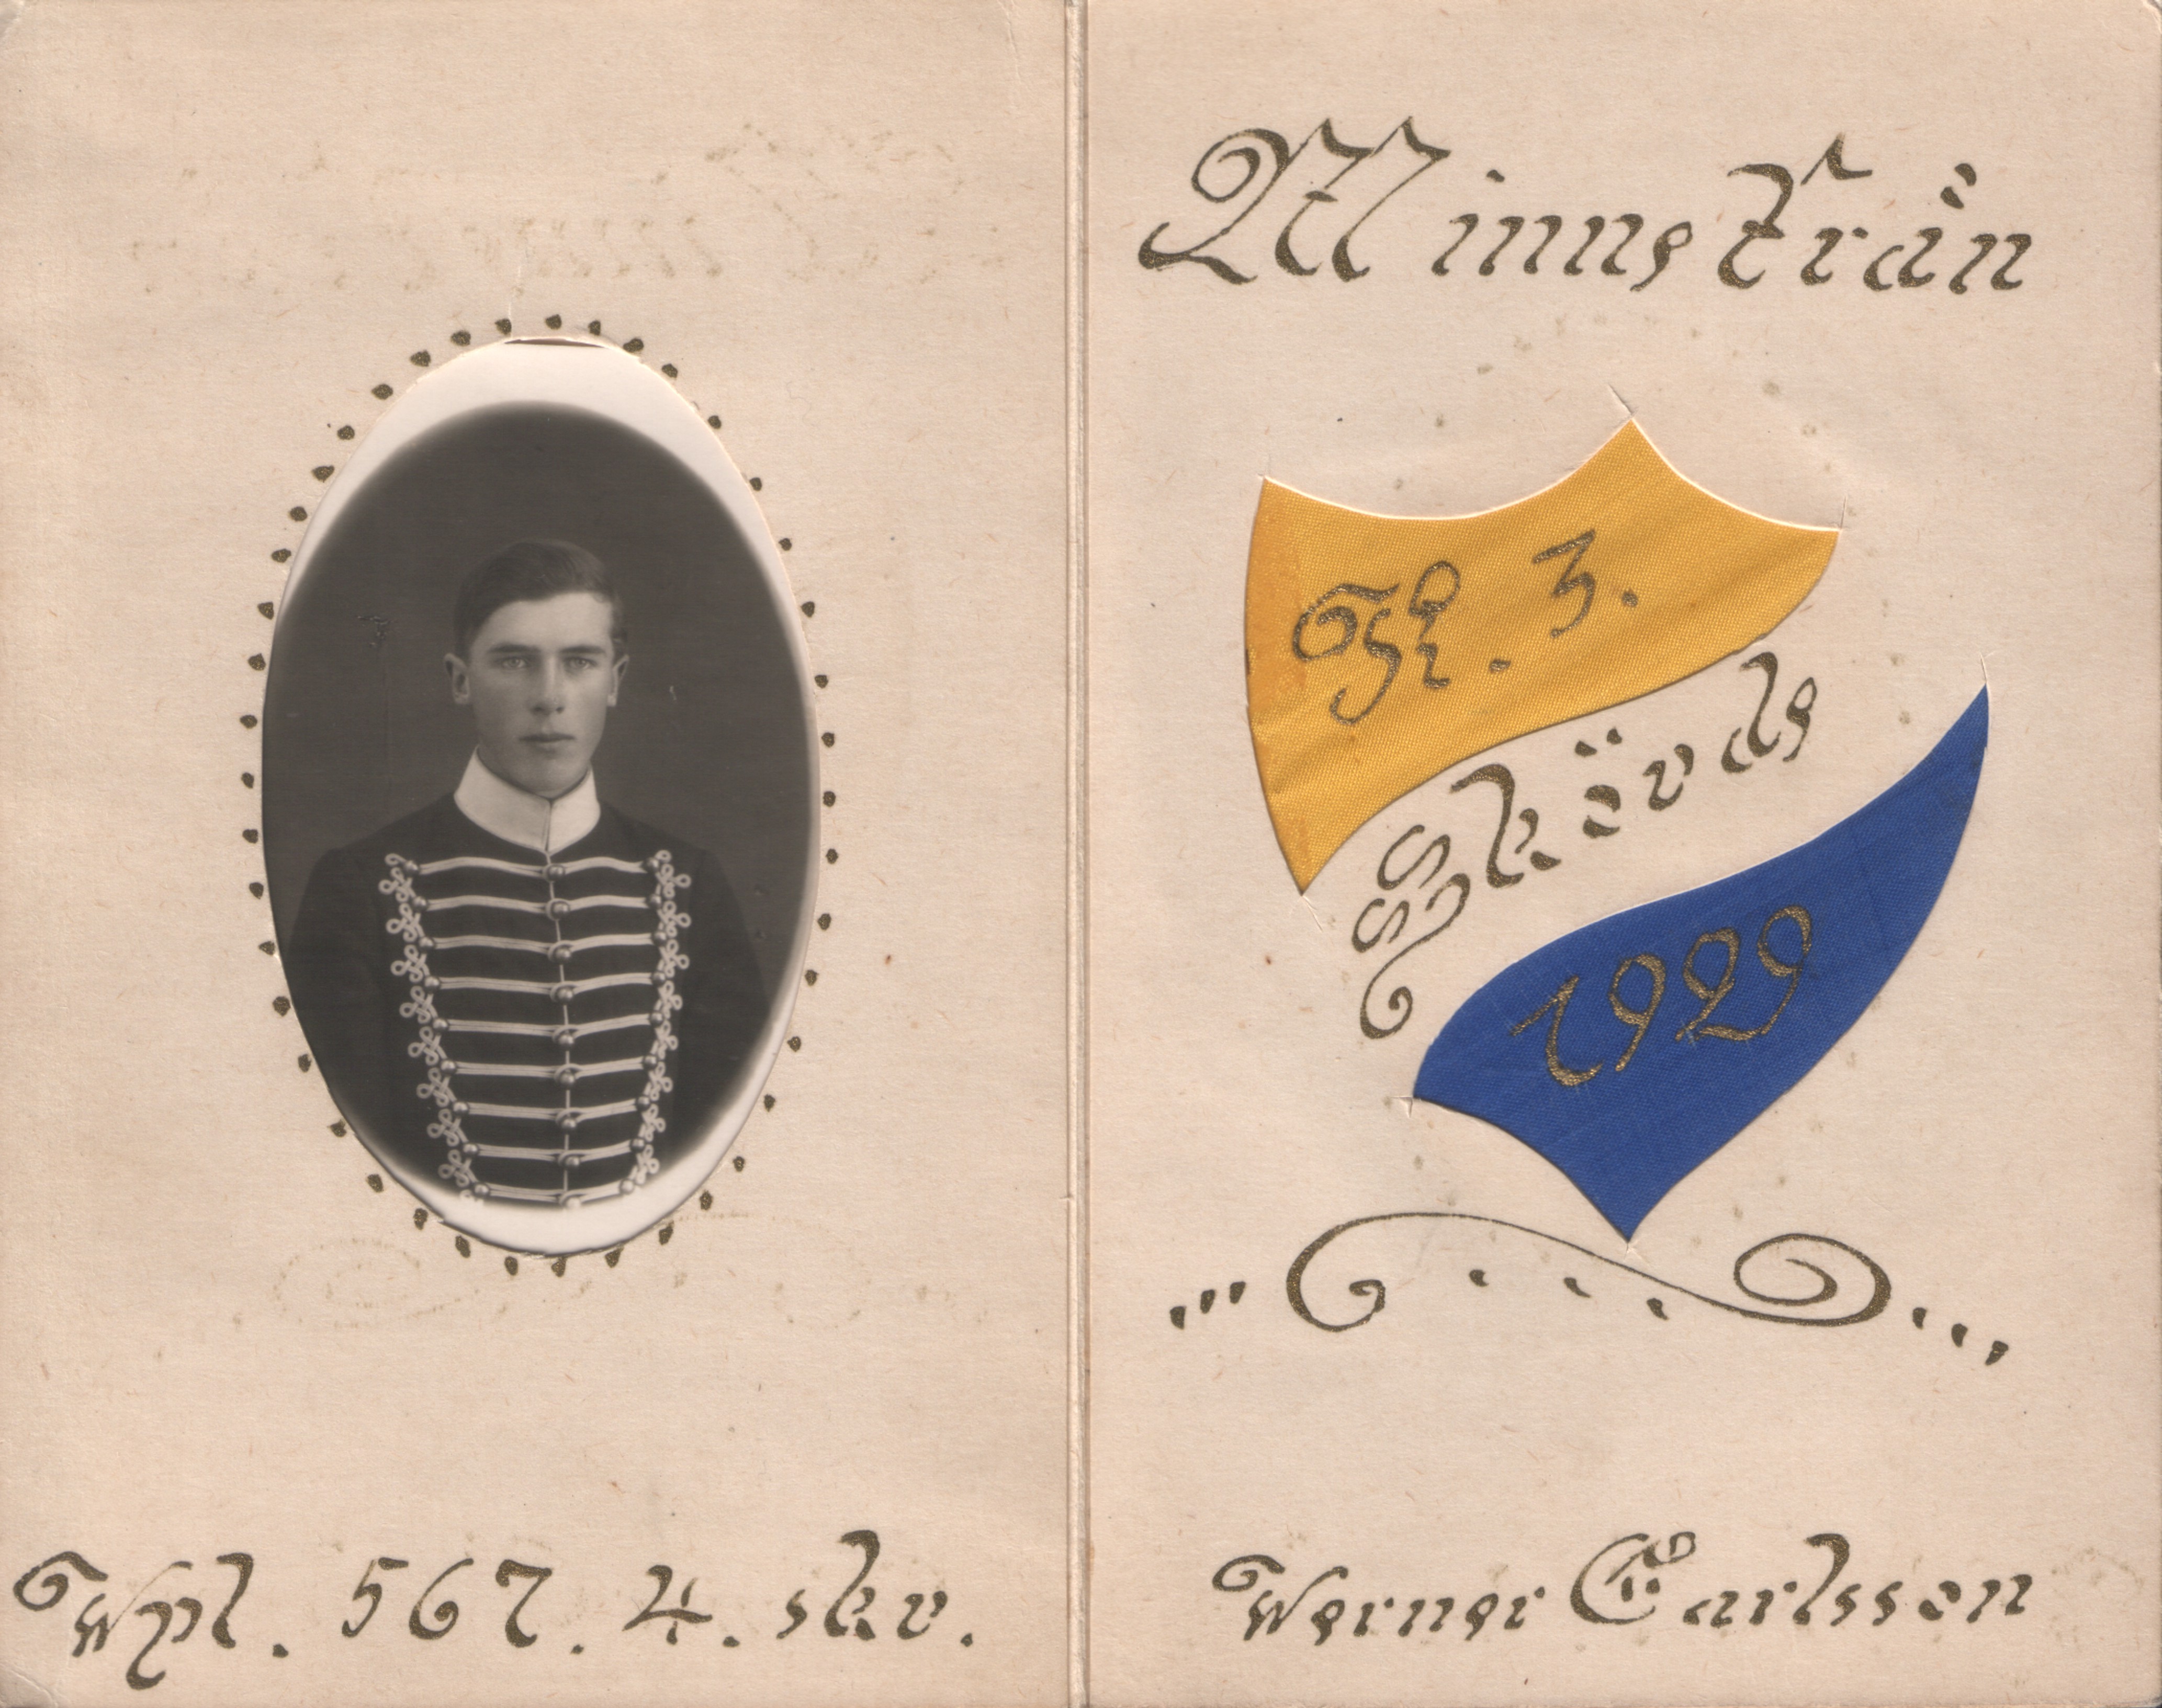 Wpl. 567. 4. skv.
Minne Från
K. 3.
Skövde
1929
Werner Carlsson